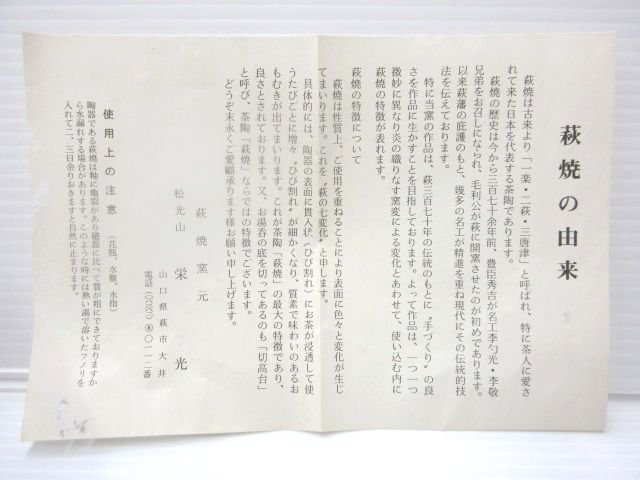 萩焼の由来
萩焼は古来より「一楽・二萩・三唐津」と呼ばれ、特に茶人に愛さ
れて来た日本を代表する茶陶であります。
萩焼の歴史は今から三百七十余年前、豊臣秀吉が名工李勺光・李敬
兄弟をお召しになられ、毛利公が萩に開窯させたのが初めであります。
以来萩藩の庇護のもと、幾多の名工が精進を重ね現代にその伝統的技
法を伝えております。
特に当窯の作品は、萩三百七十年の伝統のもとに〝手づくり〟の良
さを作品に生かすことを目指しております。よって作品は、一つ一つ
微妙に異なり炎の織りなす窯変による変化とあわせて、使い込む内に
萩焼の特徴が表れます。
萩焼の特徴について
萩焼は性質上、ご使用を重ねることにより表面に色々と変化が生じ
てまいります。これを〝萩の七変化〟と申します。
具体的には、陶器の表面に貫入状(ひび割れ)にお茶が浸透して使
うたびごとに増々〝ひび割れ〟が細かくなり、質素で味わいのあるお
もむきが出てまいります。これが茶陶「萩焼」の最大の特徴であり、
良さとされております。又、お湯呑の底を切ってあるのも「切高台」
と呼び、茶陶「萩焼」ならではの特徴でございます。
どうぞ末永くご愛顧承ります様お願い申し上げます。
萩焼窯元
松光山 栄光
山口県萩市大井
電話(〇八三八二)⑧〇一一二番
使用上の注意 (花瓶、水盤、水指)
陶器である萩焼は釉に亀裂があり磁器に比べて質が粗にできておりますか
ら水漏れする場合があります。このような時には熱い湯で溶いたフノリを
入れて二、三日余りおきますと自然に止まります。